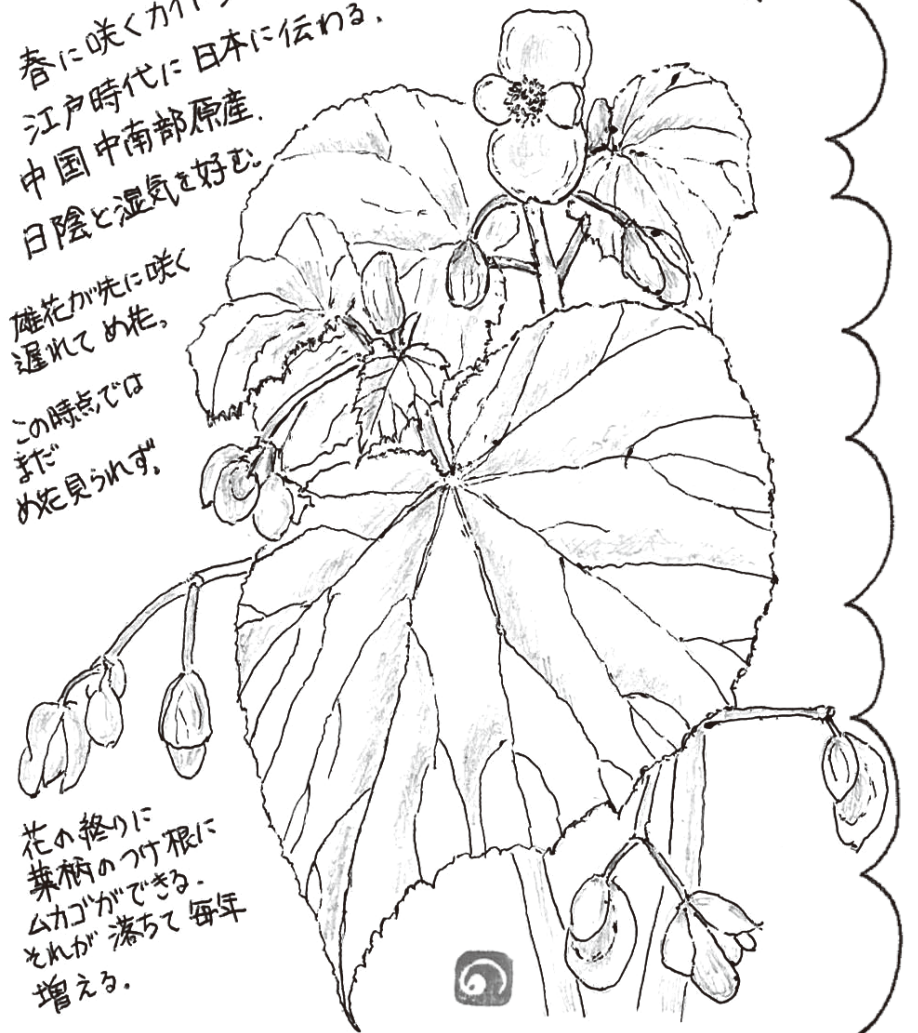 春に咲くカイドウ
江戸時代に日本に伝わる.
中国中南部原産.
日陰と湿気を好む。
雄花が先に咲く
遅れてめ花。
この時点では
まだ
め花見られず。
花の終りに
葉柄のつけ根に
ムカゴができる.
それが落ちて毎年
増える.